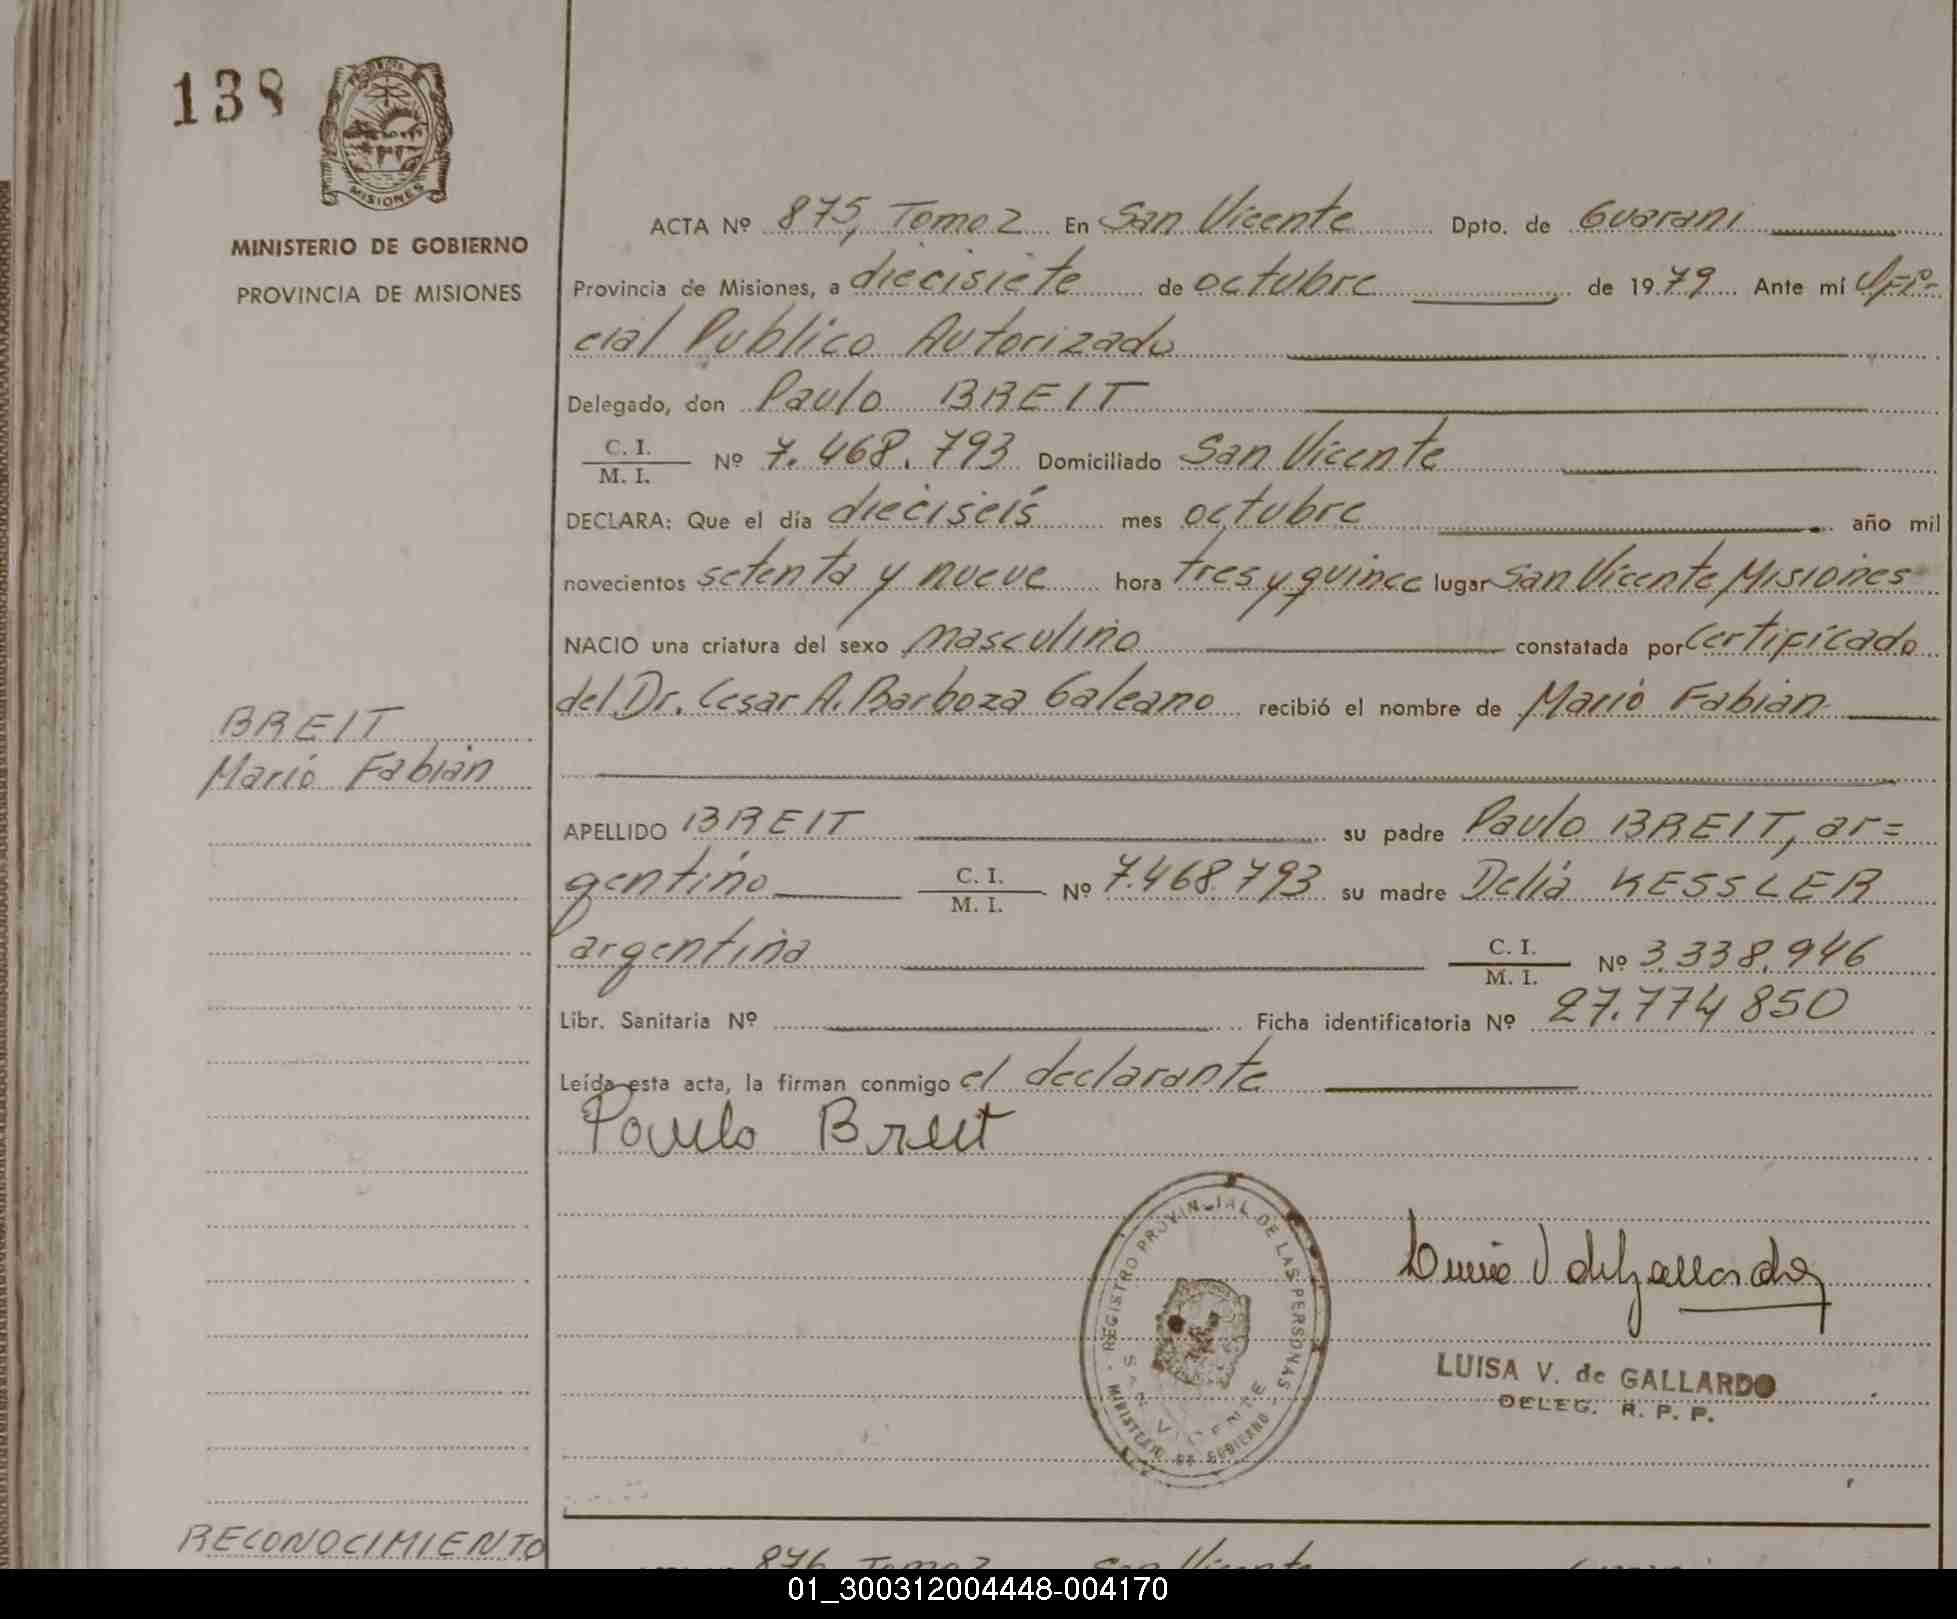 138
PROVINCIA DE
MISIONES
MINISTERIO DE GOBIERNO
PROVINCIA DE MISIONES
ACTA Nº 875, Tomo 2 En San Vicente Dpto. de Guarani
Provincia de Misiones, a diecisiete de octubre de 1979 Ante mí Ofi-
cial Publico Autorizado
Delegado, don Paulo BREIT
C. I.
M. I. Nº 7.468.793 Domiciliado San Vicente
DECLARA: Que el día dieciseis mes octubre año mil
novecientos setenta y nueve hora tres y quince lugar San Vicente Misiones
NACIO una criatura del sexo masculino constatada por Certificado
del Dr. Cesar A. Barboza Galeano recibió el nombre de Mario Fabian
BREIT
Mario Fabian
APELLIDO BREIT su padre Paulo BREIT, ar=
gentino C. I. M. I. Nº 7.468.793 su madre Delia KESSLER
argentina C. I. M. I. Nº 3.338.946
Libr. Sanitaria Nº Ficha identificatoria Nº 27.774 850
Leída esta acta, la firman conmigo el declarante
Paulo Breit
REGISTRO PROVINCIAL DE LAS PERSONAS
SAN VICENTE
MINISTERIO DE GOBIERNO
Luisa V de Gallardo
LUISA V. de GALLARDO
DELEG. R. P. P.
RECONOCIMIENTO
876 Tomo 2 San Vicente
01_300312004448-004170